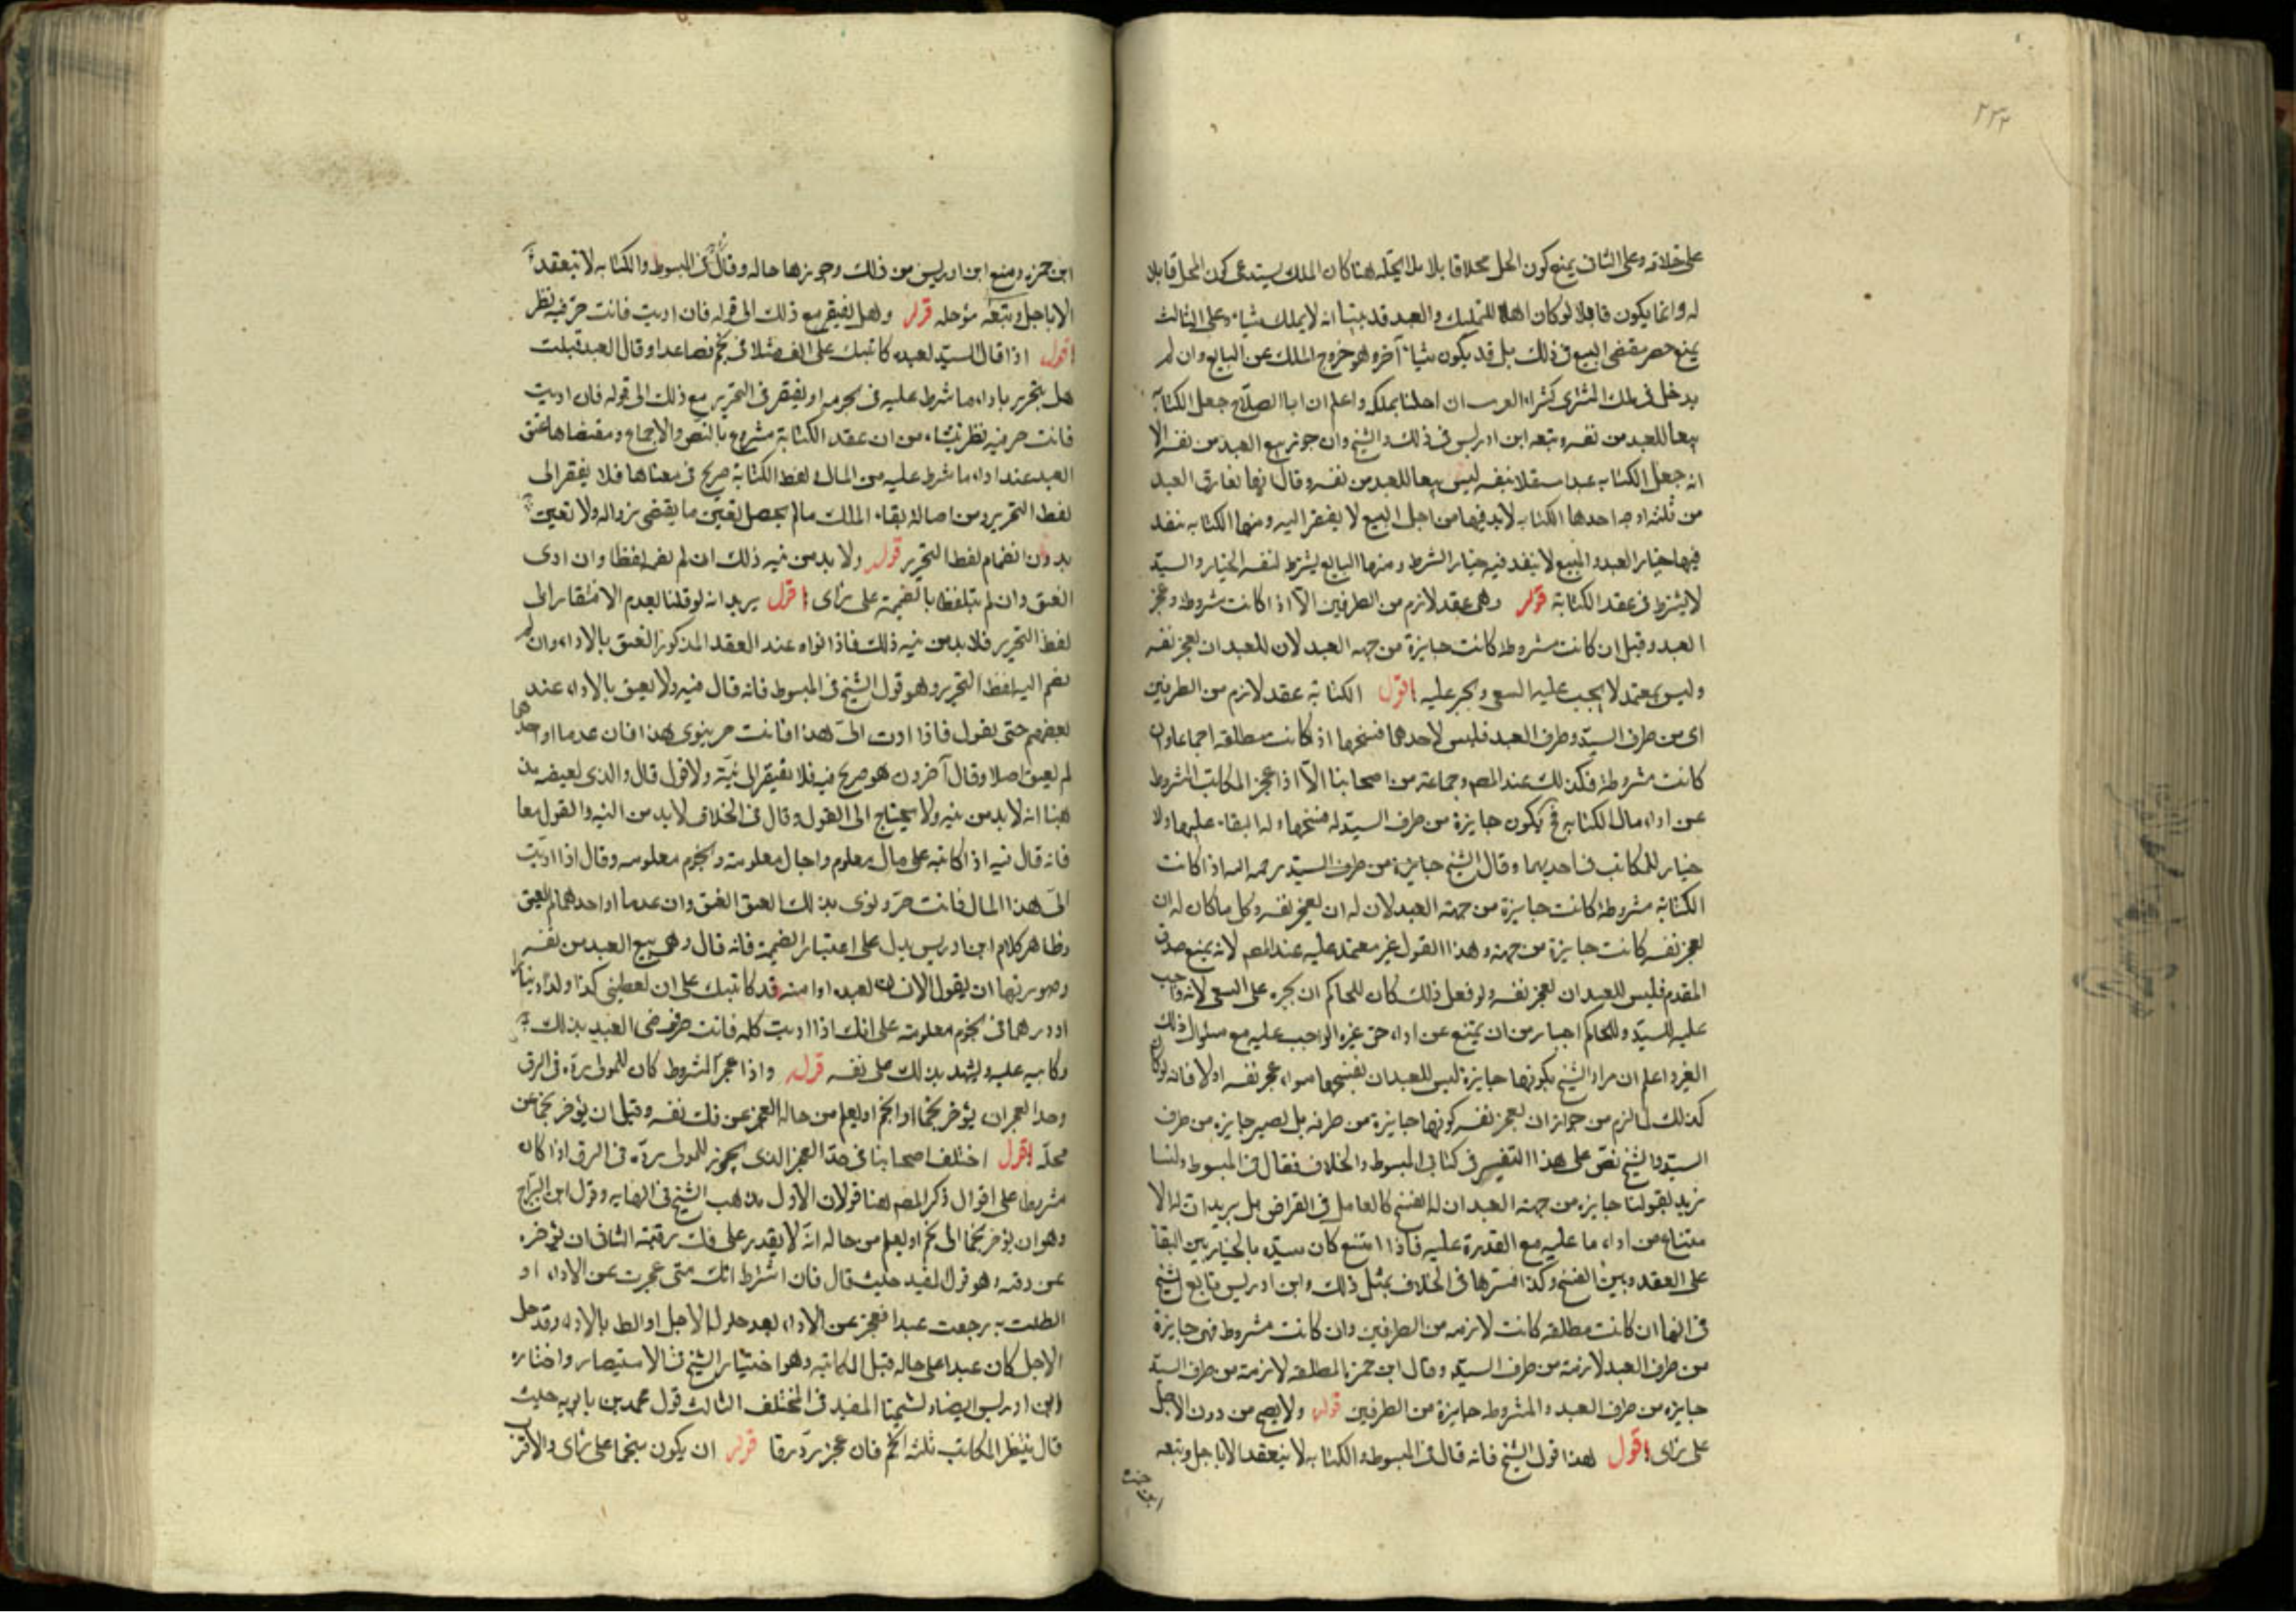 ٢٣٢
على خلافه وعلى الثانى يمنع كون المحل محلا قابلا بلا يحتله هنا كان الملك يستدعى كون المحل قابلا
له وانما يكون قابلا لو كان اهلا للتمليك والعبد قد بينا انه لا يملك شيئا وعلى الثالث
يمنع حصر مقتضى البيع فى ذلك بل قد يكون شيئا آخر وهو خروج الملك عن البايع وان لم
يدخل فى ملك المشترى كشراء ان احلنا بملكه واعلم ان ابا الصلاح جعل الكتابة
بيعا للعبد من نفسه وتبعه ابن ادريس فى ذلك والشيخ وان جوز بيع العبد من نفسه الا
انه جعل الكتابه عقدا مستقلا بنفسه ليس بيعا للعبد من نفسه وقال انها تفارق العبد
من ثلثه اوجه احدها الكتابه لابد فيها من اجل البيع لا يفتقر اليه ومنها الكتابه ينفذ
فيها خيار العبد والمبيع لا ينفذ فيه خيار الشرط ومنها البايع يشترط لنفسه الخيار والسيد
لا يشترط فى عقد الكتابة قوله وهى عقد لازم من الطرفين الا اذا كانت مشروطه وعجز
العبد وقيل ان كانت مشروطه كانت جايزة من جهه العبد لان للعبد ان يعجز نفسه
وليس بمعتمد لا يجب عليه السعى ويجبر عليه اقول الكتابة عقد لازم من الطرفين
اى من طرف السيد وطرف العبد فليس لاحدهما فسخها اذ كانت مطلقه اجماعا وان
كانت مشروطة فكذلك عند المصم وجماعة من اصحابنا الا اذا عجز المكاتب المشروط
عن اداء مال الكتابه فح يكون جايزة من طرف السيد له فسخها وله البقاء عليها ولا
خيار للمكاتب فى احديهما وقال الشيخ جايزة من طرف السيد رحمه الله اذا كانت
الكتابة مشروطة كانت جايزة من جهة العبد لان له ان يعجز نفسه وكل ما كان له ان
يعجز نفسه كانت جايزة من جهته وهذا القول غير معتمد عليه عند المصم لانه يمنع صدق
المقدم فليس للعبد ان يعجز نفسه ولو فعل ذلك كان للحاكم ان يجبره على السعى لانه واجب
عليه للسيد وللحاكم اجبار من ان يمتنع عن اداء حق غيره الواجب عليه مع سئوال ذلك
الغير واعلم ان مراد الشيخ بكونها جايزة ليس للعبد ان يفسخها سواء عجز نفسه اولا فانه لو كان
كذلك لما لزم من جواز ان يعجز نفسه كونها جايزة من طرفه بل يصير جايزه من طرف
السيد والشيخ نص على هذا التفسير فى كتابى المبسوط والخلاف فقال فى المبسوط ولسنا
نريد بقولنا جايزه من جهة العبد ان له الفسخ كالعامل فى القراض بل يريد ان له الا
متناع من اداء ما عليه مع القدرة عليه فاذا امتنع كان سيده بالخيار بين البقا
على العقد وبين الفسخ وكذا فسرها فى الخلاف بمثل ذلك وابن ادريس تابع الشيخ
فى انها ان كانت مطلقه كانت لازمه من الطرفين وان كانت مشروط فهى جايزة
من طرف العبد لازمة من طرف السيد وقال ابن حمزه المطلقه لازمة من طرف السيد
جايزه من طرف العبد والمشروطه جايزة من الطرفين قوله ولا يصح من دون الاجل
على راى اقول هذا قول الشيخ فانه قال فى المبسوط والكتابه لا ينعقد الا باجل وتبعه
ابن حمزه
ابن حمزه ومنع ابن ادريس من ذلك وجوزها حاله وقال فى المبسوط والكتابه لا تنعقد
الا باجل وتبعه مؤجله قوله وهل يفتقر مع ذلك الى قوله فان اديت فانت حر فيه نظر
اقول اذا قال السيد لعبده كاتبتك على الف مثلا فى نجم فصاعدا وقال العبد قبلت
هل يتحرر باداء ما شرط عليه فى نجومه او يفتقر فى التحرير مع ذلك الى قوله فان اديت
فانت حر فيه نظر ينشاء من ان عقد الكتابة مشروع بالنص والاجماع ومقتضاها عتق
العبد عند اداء ما شرط عليه من المال ولفظ الكتابة صريح فى معناها فلا يفتقر الى
لفظ التحرير ومن اصالة بقاء الملك ما لم يحصل تعين ما يقتضى زواله ولا تعين
بدون انضمام لفظ التحرير قوله ولا بد من نيه ذلك ان لم نضم لفظا وان ادى
العتق وان لم يتلفظ بالضميمة على راى اقول يريد انه لو قلنا بعدم الافتقار الى
لفظ التحرير فلا بد من نيه ذلك فاذا نواه عند العقد المذكور العتق بالاداء وان لم
نضم اليه لفظ التحرير وهو قول الشيخ فى المبسوط فانه قال فيه ولا يعتق بالاداء عند
بعضهم حتى يقول فاذا ادت الى هذا فانت حر ينوى هذا فان عدما او احدهما
لم يعتق اصلا وقال آخرون هو صريح فيه فلا يفتقر الى نيه ولا قول قال والذى يقتضيه مذ
هبنا انه لا بد من نيه ولا يحتاج الى القول وقال فى الخلاف لابد من النيه والقول معا
فانه قال فيه اذ كاتبه على مال معلوم واجال معلومة ونجوم معلومه وقال اذا اديت
الى هذا المال فانت حر ونوى بذلك العتق انعتق وان عدما او احدهما لم يعتق
وظاهر كلام ابن ادريس يدل على اعتبار الضميمة فانه قال وهى بيع العبد من نفسه
وصورتها ان يقول الانسان لعبده او امته قد كاتبتك على ان تعطينى كذا وكذا دينارا
او درهما فى نجوم معلومة على انك اذا اديت كله فانت حر فيرضى العبد بذلك
وكاتبه عليه وليشهد بذلك على نفسه قوله واذا عجز المشروط كان للمولى رده فى الرق
وحد العجز ان يؤخر نجما الى نجم او يعلم من حاله العجز عن فك نفسه وقيل ان يؤخر نجما عن
محله اقول اختلف اصحابنا فى حد العجز الذى يجوز للمولى رده فى الرق اذا كان
مشروطا على اقوال ذكر المصم هنا قولان الاول مذهب الشيخ فى النهايه وقول ابن البراج
وهو ان يؤخر نجما الى نجم او يعلم من حاله انه لا يقدر على فك رقبته الثانى ان يؤخره
عن وقته وهو قول المفيد حيث قال فان اشترط انك متى عجزت عن الاداء او
الطلت به رجعت عبدا فعجز عن الاداء بعد حلول الاجل او الط بالاداء وقد حل
الاجل كان عبدا على حاله قبل المكاتبه وهو اختيار الشيخ فى الاستبصار واختاره
ابن ادريس ايضا وشيخنا المفيد فى المختلف الثالث قول محمد بن بابويه حيث
قال ينتظر المكاتب ثلثه انجم فان عجز رد رقا قوله ان يكون منجما على راى والاقرب